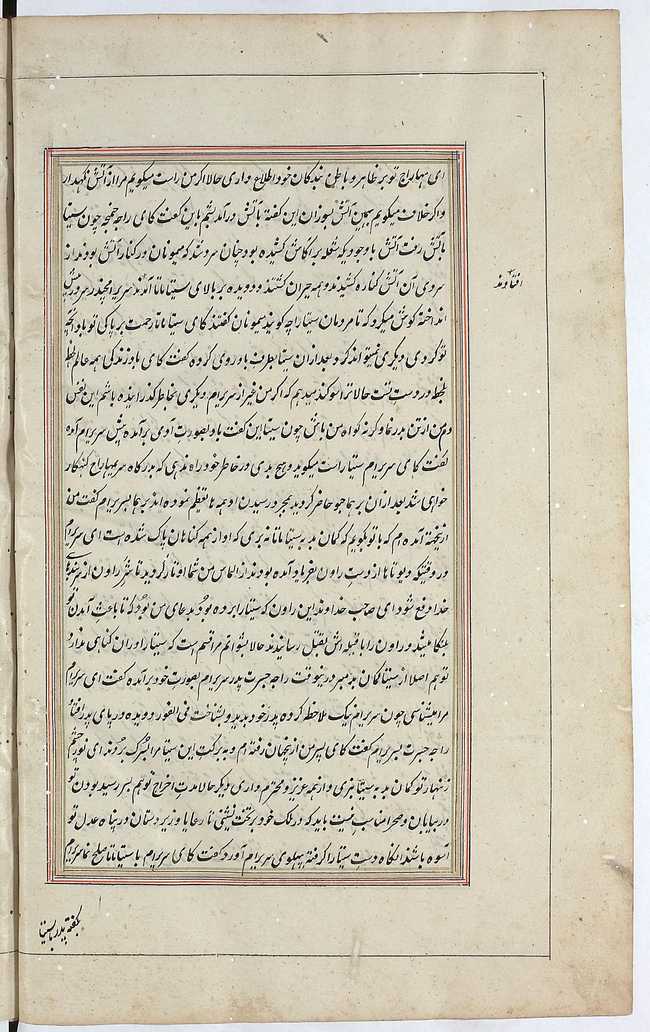 ای مهاراج تو بر ظاهر و باطن بندکان خود اطلاع داری حالا اکر من راست میکویم مرا از آتش نکهدار
و اکر خلاف میکویم بهمین آتش بسوزان این کفته بآتش درآمد بشم باین کعت کای راجه جون سیتا
بآتش رفت آتش باوجودیکه شعله بر آکاش کشیده بود چنان سرو شد که میمونان در کنار آتش بودند از
سردی آن آتش کناره کشیدند و همه حیران کشتند و دویده بر بالای سیتا ماتا آمدند سریرامچندر سر در پیش
انداخته کوش میکرد که تا مردمان سیتا را چه کویند میمونان کفتند کای سیتا ماتا رحمت بر پاکی تو باد آنچه
تو کردی دیکری نمیتواند کرد بعد ازان سیتا بطرف باد روی کرده کفت کای باد زندکی همه عالم
در دست تست حالا ترا سوکند میدهم که اکر من غیر از سریرام دیکری بخاطر کذرانیده باشم این نفس
دم من از تن بدر نما و کرنه کواه من باش چون سیتا این کفت باد بصورت آدمی برآمده پیش سریرام آمده
کفت کای سریرام سیتا راست میکوید و هیچ بدی در خاطر خود راه ندهی که بدرکاه سریمهاراج کنهکار
خواهی شد بعد ازان برهما جیو حاضر کردید بمجرد رسیدن او همه ها تعظیم نموده اند برهما بسریرام کفت من
ازینجهة آمده ام که با تو بکویم که کمان بد به سیتا ماتا نه بری که او از همه کناهان پاک شده است ای سریرام
در وقتیکه دیوتاها از دست راون بفریاد آمده بودند از التماس من شما اوتار کردید تا شر راون از بندهای
خدا دفع شود ای صاحب خداوند این راون که سیتا را برده بود بدعای من بود که تا باعث آمدن تو
بلنکا میشد و راون را با قبیله اش بقتل رسانیدند حالا بشوانم مرا قسم است که سیتا را دران کناهی ندارد
تو هم اصلا از سیتا کمان بد مبر درینوقت راجه جسرت پدر سریرام بصورت خود برآمده کفت ای سریرام
مرا میشناسی چون سریرام نیک ملاحظه کرده پدر خود بدید و بشناخت فی الفور دویده در پای پدر افتاد
راجه جسرت بسریرام کفت کای پسر من ازینجهان رفته ام و به برکت این سیتا مرا بسرک بردند ای نور چشم
زنهار تو کمان بد به سیتا نبری و از همه عزیز و محترم داری دیکر حالا مدت اخراج تو هم بسر رسید بودن تو
در بیابان و صحرا مناسب نیست باید که در ملک خود بر تخت نشینی تا رعایا و زیردستان در پناه عدل تو
آسوده باشند انکاه دست سیتا را کرفته پهلوی سریرام آورد کفت کای سریرام با سیتا ماتا صلح نما سریرام
افتادند
بکفته پدر با سیتا